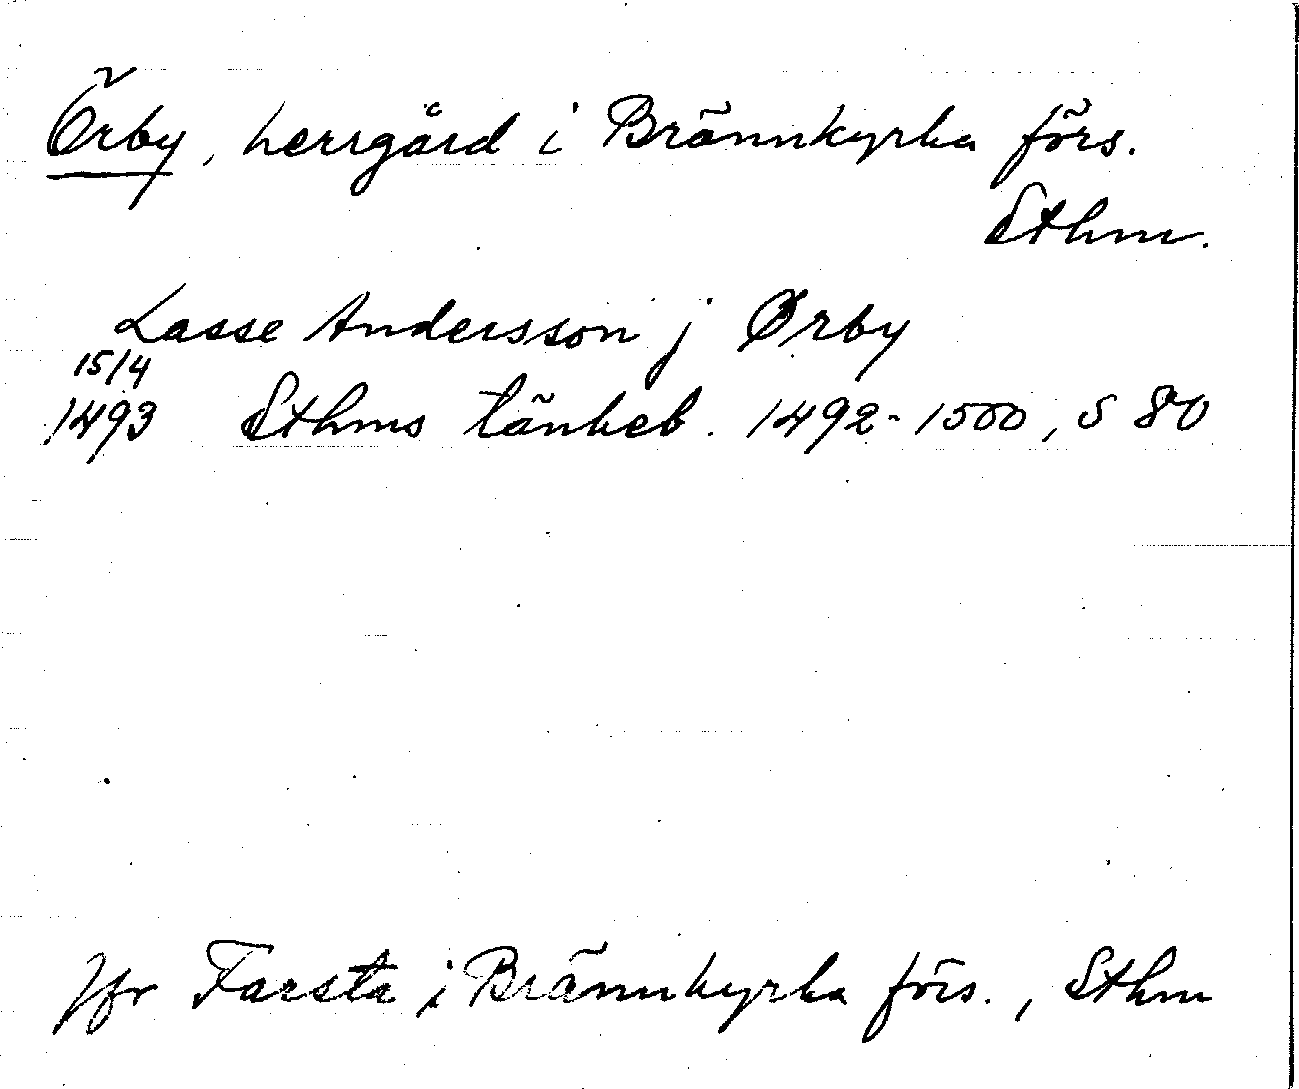 Örby, herrgård i Brännkyrka förs.
Sthm.
Lasse Andersson j Ørby
15/4
1493 Sthms tänkeb. 1492-1500, S 80
Jfr Farsta i Brännkyrka förs., Sthm